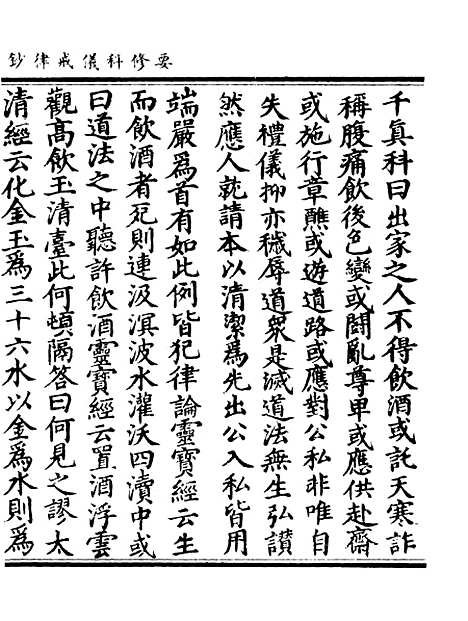 要修科儀戒律鈔
千真科曰出家之人不得飲酒或託天寒詐
稱腹痛飲後色變或鬪亂尊卑或應供赴齋
或施行章醮或遊道路或應對公私非唯自
失禮儀抑亦穢辱道衆是滅道法無生弘讃
然應人就請本以清潔為先出公入私皆用
端嚴爲首有如此例皆犯律論靈寶經云生
而飲酒者死則連汲溟波水灌沃四瀆中或
曰道法之中聽許飲酒靈寶經云置酒浮雲
觀高飲玉清臺此何頓隔答曰何見之謬太
清經云化金玉爲三十六水以金爲水則爲